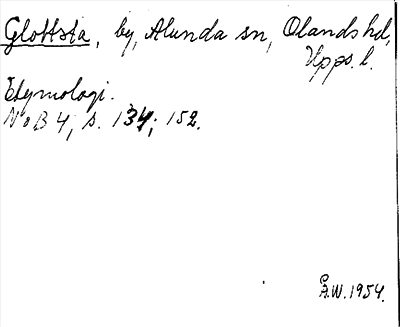 Glottsta, by, Alunda sn, Olands hd,
Upps. l.
Etymologi.
NoB 4, s. 134; 152.
Å.W. 1954.